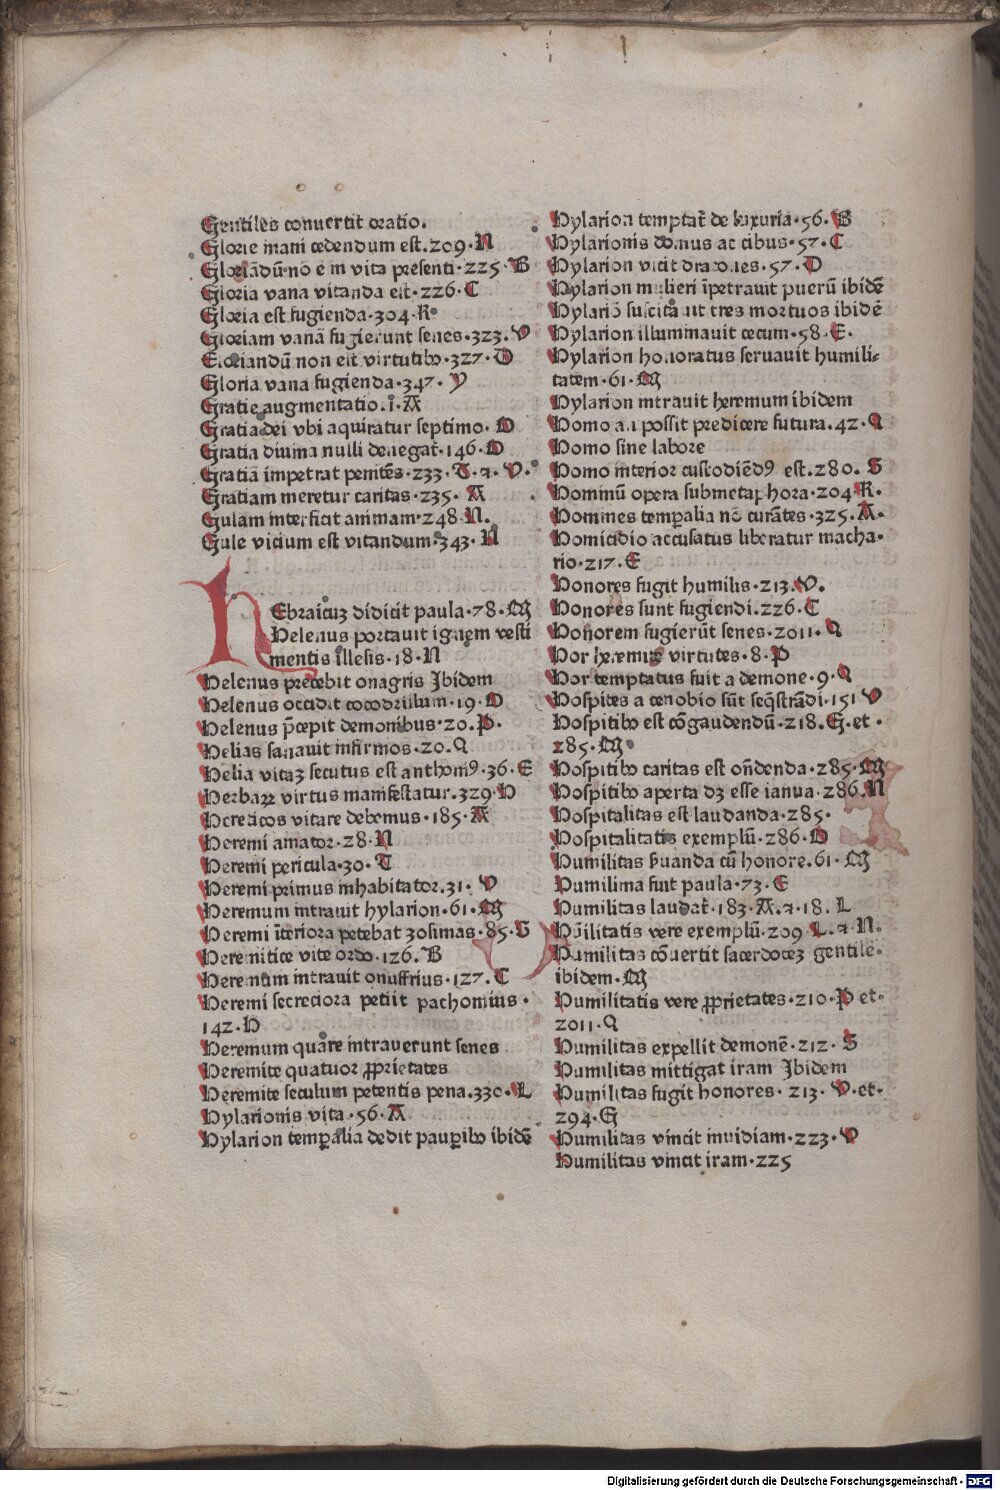 Gentiles conuertit oratio.
Glorie inani cedendum est.209.N
Gloriādū nō ē in vita presenti.225.B
Gloria vana vitanda est.226.C
Gloria est fugienda.304.R
Gloriam vanā fugierunt senes.323.V
Gloriandū non est virtutibꝰ.327.D
Gloria vana fugienda.347.Y
Gratie augmentatio.i.A
Gratia dei vbi aquiratur septimo.O
Gratia diuina nulli denegat̄.146.O
Gratiā impetrat penitēs.233.T.⁊.V.
Gratiam meretur caritas.235.A
Gulam interficit animam.248.N.
Gule vicium est vitandum.343.N
HEbraicuꝫ didicit paula.78.M
Helenus portauit ignem vesti
mentis illesis.18.N
Helenus precebit onagris Ibidem
Helenus occidit cocodrillum.19.O
Helenus p̄cepit demonibus.20.P.
Helias sanauit infirmos.20.Q
Helia vitaꝫ secutus est anthoniꝰ.36.E
Herbaꝝ virtus manifestatur.329.H
Hereticos vitare debemus.185.A
Heremi amator.28.N
Heremi pericula.30.T
Heremi primus inhabitator.31.V
Heremum intrauit hylarion.61.M
Heremi īteriora petebat zosimas.85.G
Heremitice vite ordo.126.B
Heremum intrauit onuffrius.127.C
Heremi secreciora petiit pachomius.
142.H
Heremum quare intrauerunt senes
Heremite quatuor ꝓprietates
Heremite seculum petentis pena.330.L
Hylarionis vita.56.A
Hylarion temꝑalia dedit pauꝑibꝰ ibidē
Hylarion temptat̄ de luxuria.56.B
Hylarionis domus ac cibus.57.C
Hylarion vicit dracones.57.D
Hylarion mulieri īpetrauit puerū ibidē
Hylariō suscitauit tres mortuos ibidē
Hylarion illuminauit cecum.58.E.
Hylarion honoratus seruauit humili⸗
tatem.61.M
Hylarion intrauit heremum ibidem
Homo an possit predicere futura.42.Q
Homo sine labore
Homo interior custodiēdꝰ est.280.S
Hominū opera submetaphora.204.R.
Homines temꝑalia nō curātes.325.A.
Homicidio accusatus liberatur macha⸗
rio.217.E
Honores fugit humilis.213.V.
Honores sunt fugiendi.226.C
Honorem fugierūt senes.2011.Q
Hor heremite virtutes.8.P
Hor temptatus fuit a demone.9.Q
Hospites a cenobio sūt seq̄strādi.151 V
Hospitibꝰ est cōgaudendū.218.G.et.
285.M.
Hospitibꝰ caritas est oñdenda.285.M
Hospitibꝰ aperta dꝫ esse ianua.286.N
Hospitalitas est laudanda.285.
Hospitalitatis exemplū.286.O
Humilitas ẜuanda cū honore.61.M
Humilima fuit paula.73.E
Humilitas laudat̄.183.A.⁊.18.L
Humilitatis vere exemplū.209 L.⁊.N.
Humilitas cōuertit sacerdoceꝫ gentile⸗
ibidem.M
Humilitatis vere ꝓprietates.210.P et.
2011.Q
Humilitas expellit demonē.212.S
Humilitas mittigat iram Ibidem
Humilitas fugit honores.213.V.et.
294.G
Humilitas vincit inuidiam.223.V
Humilitas vincit iram.225
Digitalisierung gefördert durch die Deutsche Forschungsgemeinschaft - DFG